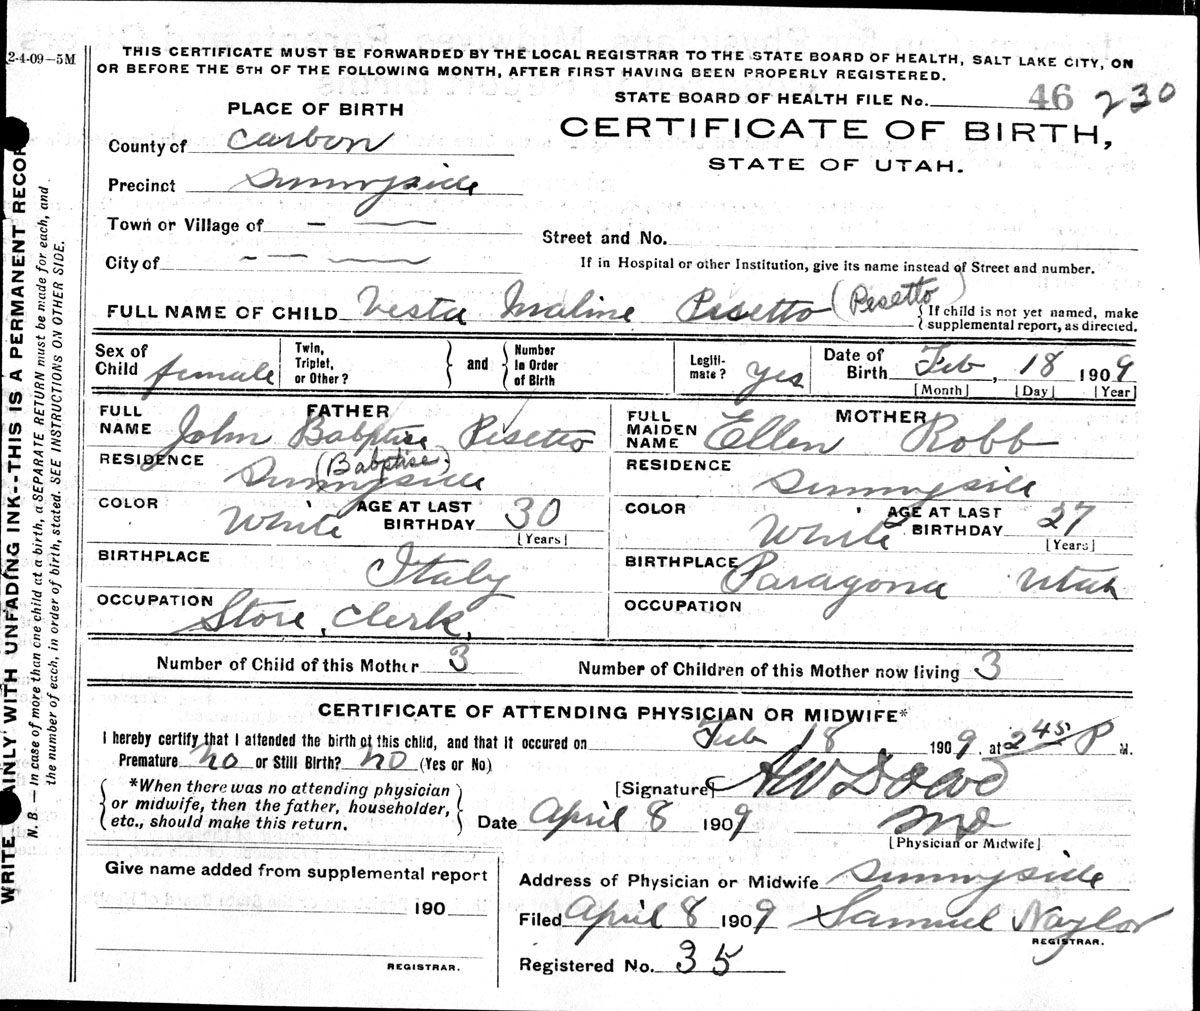 2-4-09—5M
THIS CERTIFICATE MUST BE FORWARDED BY THE LOCAL REGISTRAR TO THE STATE BOARD OF HEALTH, SALT LAKE CITY, ON
OR BEFORE THE 5TH OF THE FOLLOWING MONTH, AFTER FIRST HAVING BEEN PROPERLY REGISTERED.
STATE BOARD OF HEALTH FILE No. 46 230
PLACE OF BIRTH
CERTIFICATE OF BIRTH,
STATE OF UTAH.
County of Carbon
Precinct Sunnyside
Town or Village of — —
Street and No.
City of — — —
If in Hospital or other Institution, give its name instead of Street and number.
FULL NAME OF CHILD Vesta Maline Pesetto (Pesetto)
{If child is not yet named, make
supplemental report, as directed.
Sex of Child female
Twin, Triplet, or Other? } and { Number in Order of Birth
Legiti-mate? yes
Date of Birth Feb, 18 1909
[Month] [Day] [Year]
FATHER
FULL NAME John Babptise Pesetto
(Babptise)
RESIDENCE Sunnyside
COLOR White AGE AT LAST BIRTHDAY 30
[Years]
BIRTHPLACE Italy
OCCUPATION Store Clerk
MOTHER
FULL MAIDEN NAME Ellen Robb
RESIDENCE Sunnyside
COLOR White AGE AT LAST BIRTHDAY 27
[Years]
BIRTHPLACE Paragona Utah
OCCUPATION
Number of Child of this Mother 3 Number of Children of this Mother now living 3
CERTIFICATE OF ATTENDING PHYSICIAN OR MIDWIFE*
I hereby certify that I attended the birth of this child, and that it occured on Feb 18 1909, at 2 45 P M.
Premature no or Still Birth? no (Yes or No)
{ *When there was no attending physician
or midwife, then the father, householder,
etc., should make this return. }
[Signature] A W Dowd
Date April 8 1909 MD
[Physician or Midwife]
Give name added from supplemental report
190
REGISTRAR.
Address of Physician or Midwife Sunnyside
Filed April 8 1909 Samuel Naylor
REGISTRAR.
Registered No. 35
WRITE PLAINLY WITH UNFADING INK--THIS IS A PERMANENT RECORD
N. B.—In case of more than one child at a birth, a SEPARATE RETURN must be made for each, and
the number of each, in order of birth, stated. SEE INSTRUCTIONS ON OTHER SIDE.